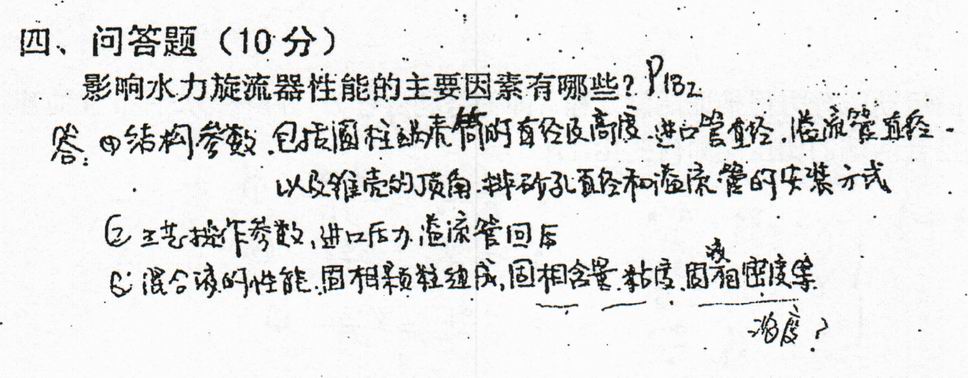 四、问答题（10分）
影响水力旋流器性能的主要因素有哪些？P132
答：①结构参数，包括圆柱端壳筒的直径及高度，进口管直径，溢流管直径，
以及锥壳的顶角，排砂孔直径和溢流管的安装方式
②工艺操作参数，进口压力，溢流管回压
③混合液的性能，固相颗粒组成，固相含量，粘度，固液相密度等
浓度？